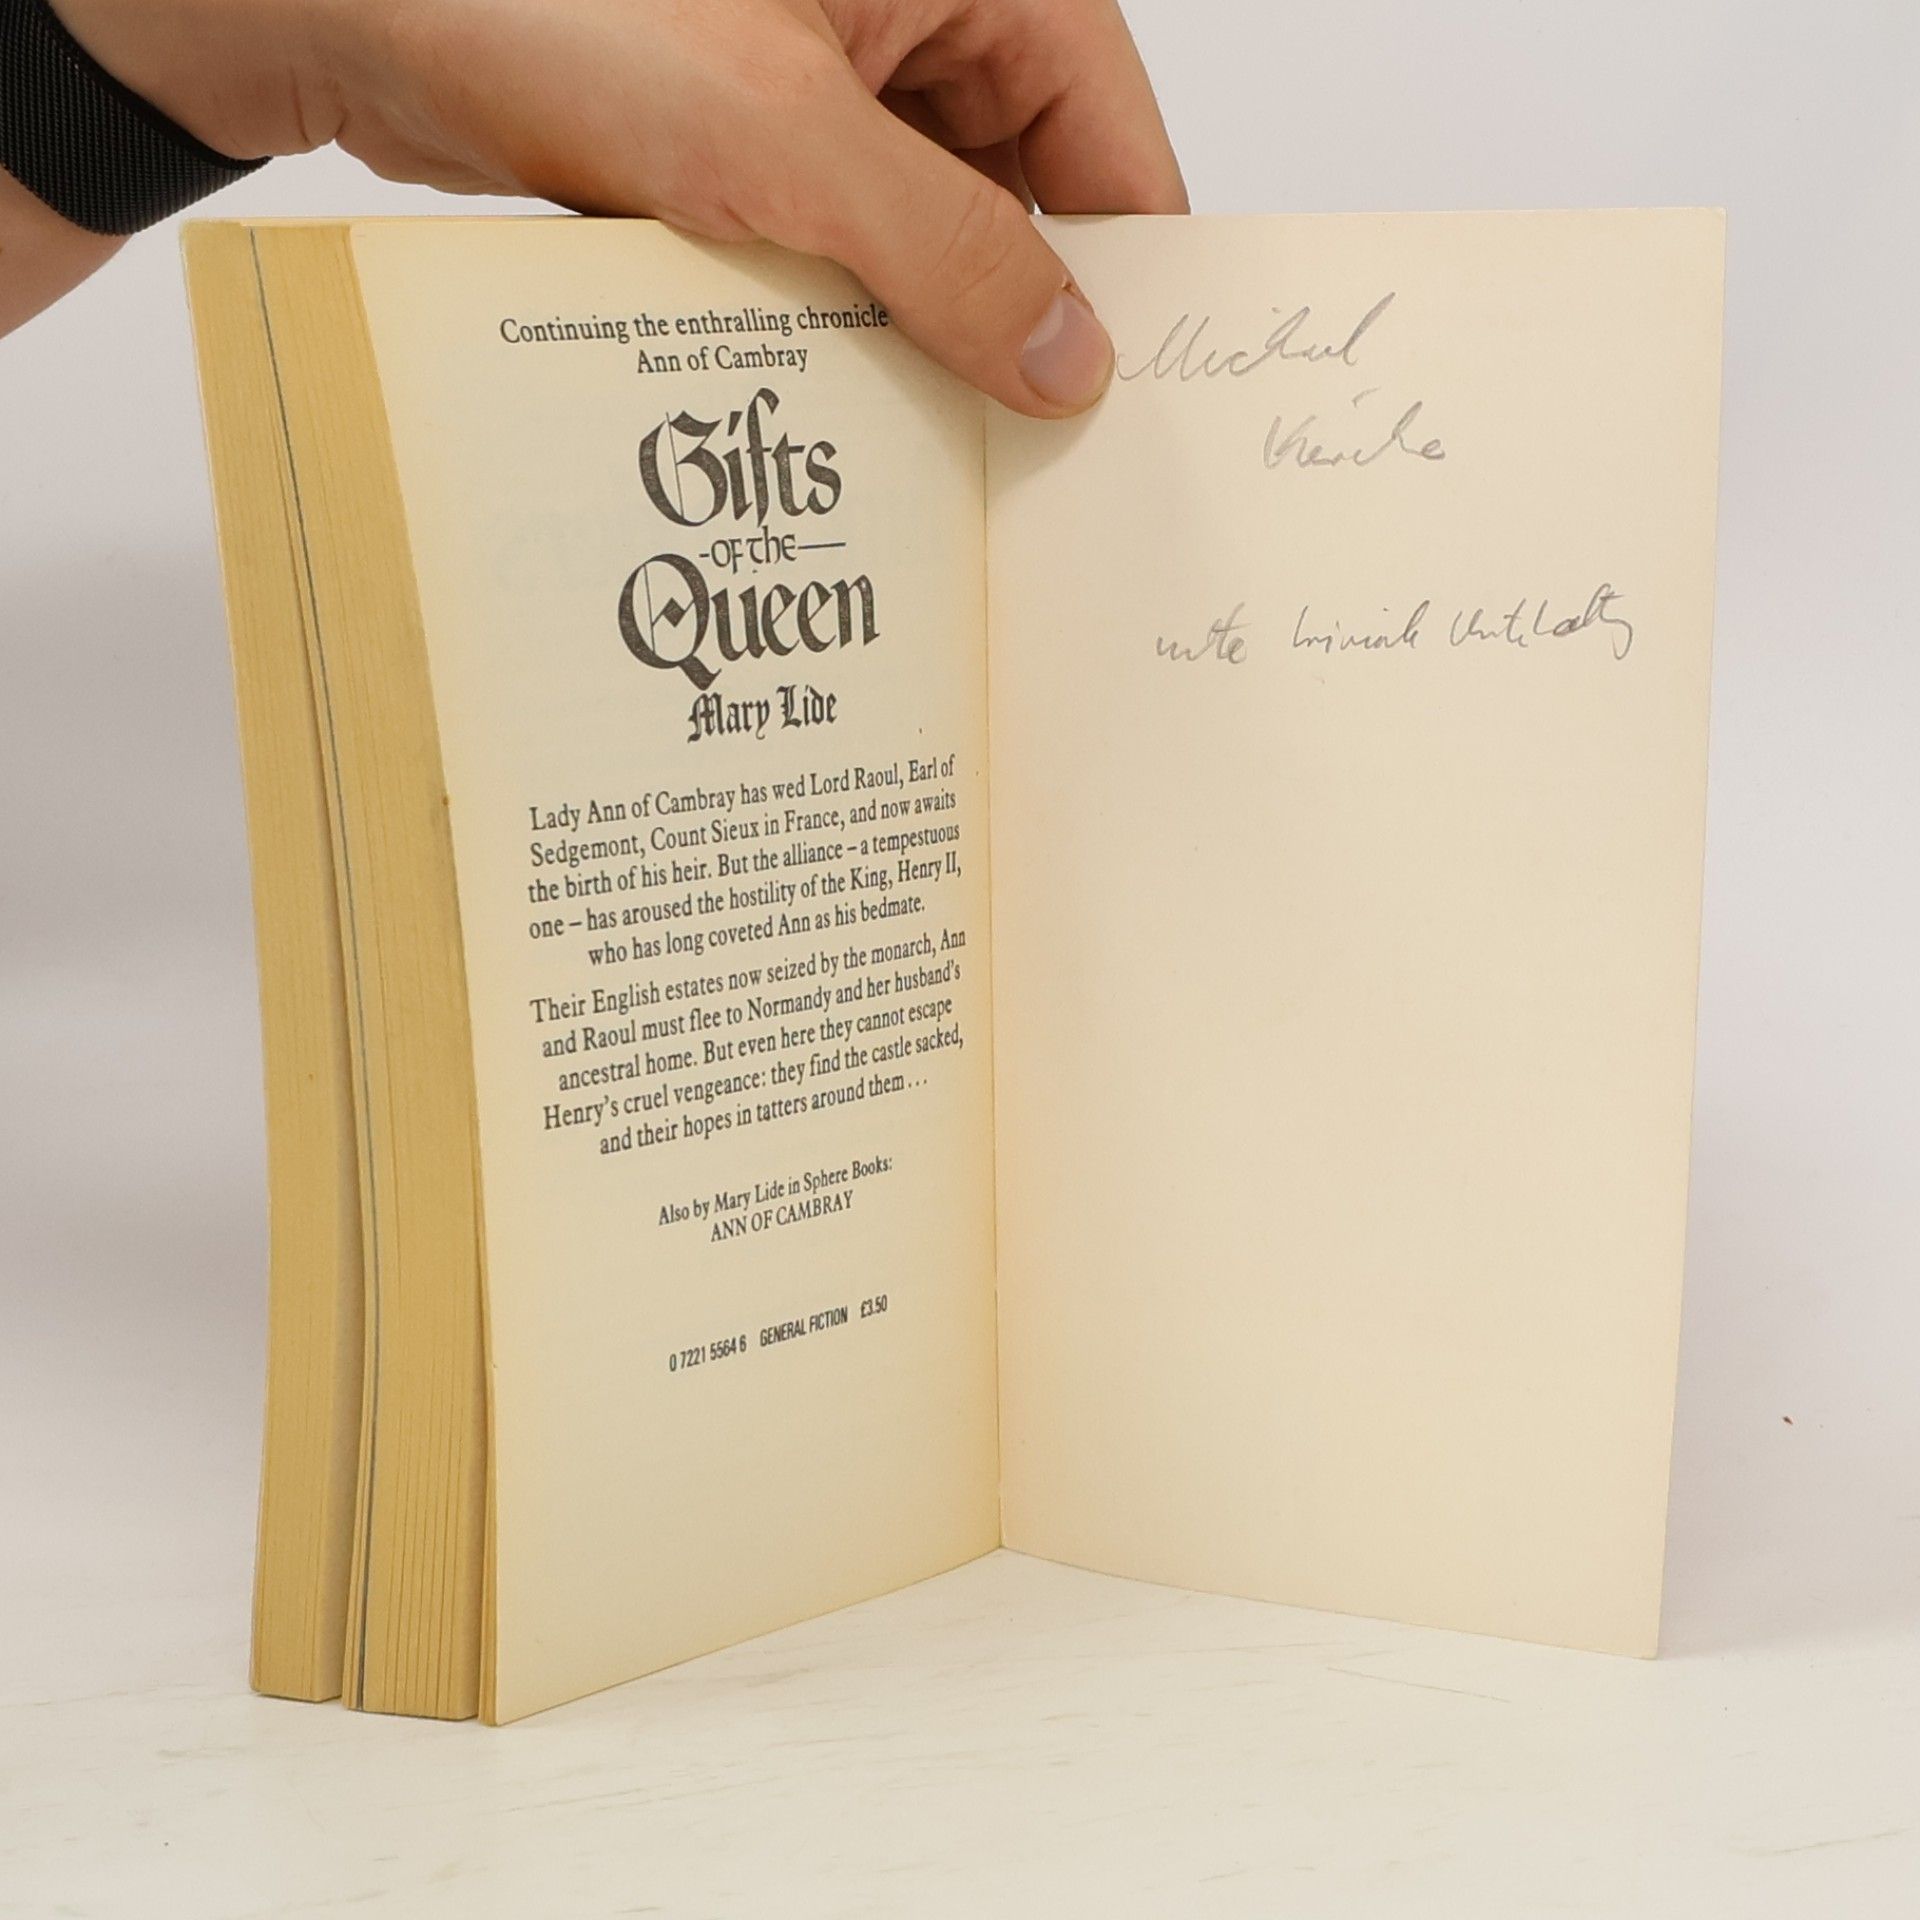 Continuing the enthralling chronicle
Ann of Cambray
Gifts
-OF the—
Queen
Mary Lide
Lady Ann of Cambray has wed Lord Raoul, Earl of
Sedgemont, Count Sieux in France, and now awaits
the birth of his heir. But the alliance – a tempestuous
one – has aroused the hostility of the King, Henry II,
who has long coveted Ann as his bedmate.
Their English estates now seized by the monarch, Ann
and Raoul must flee to Normandy and her husband's
ancestral home. But even here they cannot escape
Henry's cruel vengeance: they find the castle sacked,
and their hopes in tatters around them...
Also by Mary Lide in Sphere Books:
ANN OF CAMBRAY
0 7221 5564 6 GENERAL FICTION £3.50
Michael